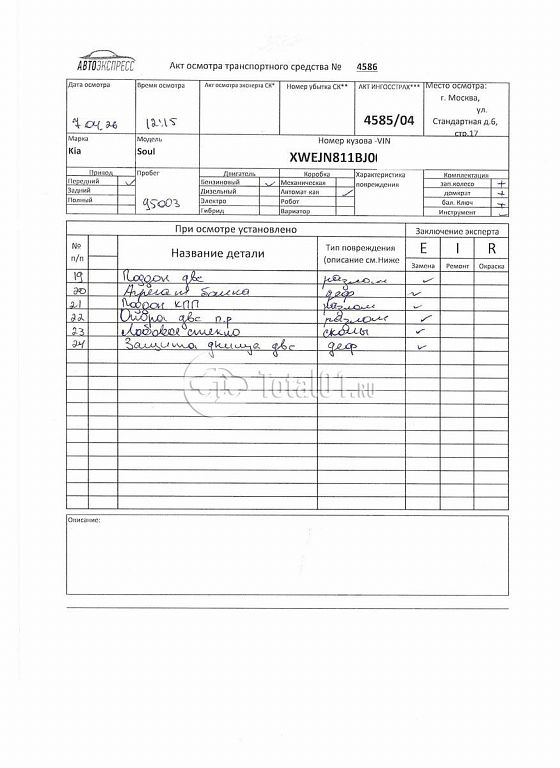 АВТОЭКСПРЕСС
Акт осмотра транспортного средства № 4586
Дата осмотра
7 04 26
Время осмотра
12:15
Акт осмотра эксперта СК*
Номер убытка СК**
АКТ ИНГОССТРАХ***
4585/04
Место осмотра:
г. Москва,
ул.
Стандартная д.6,
стр.17
Марка
Kia
Модель
Soul
Номер кузова -VIN
XWEJN811BJ0
Привод
Передний ✓
Задний
Полный
Пробег
95003
Двигатель
Бензиновый ✓
Дизельный
Электро
Гибрид
Коробка
Механическая
Автомат кан ✓
Робот
Вариатор
Характеристика
повреждения
Комплектация
зап.колесо +
домкрат +
бал. Ключ +
Инструмент ✓
При осмотре установлено
Заключение эксперта
№
п/п
Название детали
Тип повреждения
(описание см.Ниже
E I R
Замена Ремонт Окраска
19 Поддон двс разлом ✓
20 бачка деф ✓
21 Поддон КПП разлом ✓
22 Опора двс п.р разлом ✓
23 Лобовое стекло сколы ✓
24 Защита днища двс деф ✓
Total01.RU
Описание: